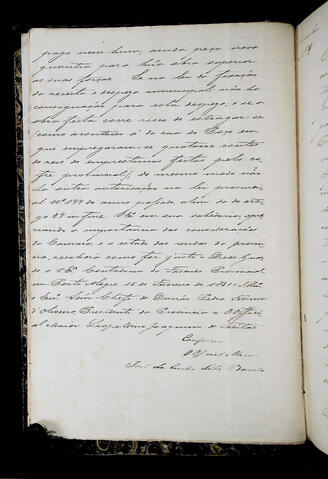 pago nem hum, ainda peço nova
quantia para huã obra superior
as suas forças. Se na lei de fixação
da receita e despeza municipal não ha
consignação para esta despeza, e se a
obra feita corre risco de estragar-se
como aconteceo á do caes do em
que empregaram-se quatorze contos
de reis de emprestimos feitos pelo co-
fre provincial, do mesmo modo não
ha outra autorisação na lei provinci-
al Nº 199 do anno passado, alem da do arti-
go 29 in fine. VExª em sua sabedoria, apre-
ciando a importancia das considerações
da Camara e o estado das rendas da provin-
cia, resolverá como for justo. Deos Guar-
de a VExª Contadoria da Fazenda Provincial
em Porto Alegre 15 de Fevereiro de 1851. Illmo
e Exmo Senr Chefe de Divisão Pedro Ferreira
d'Oliveira, Presidente da Provincia. O Offici-
al Maior Leopoldino Joaquim de Freitas.
Conforme
O Official Maior
José da Cunha